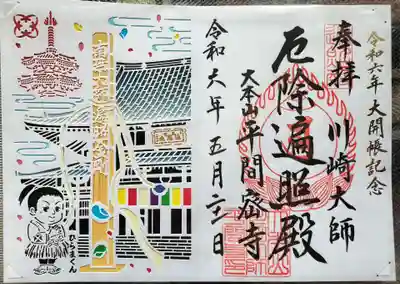 令和六年大開帳記念
奉拝
川崎大師
厄除遍照殿
大本山平間密寺
令和六年五月二十一日
ひらまくん